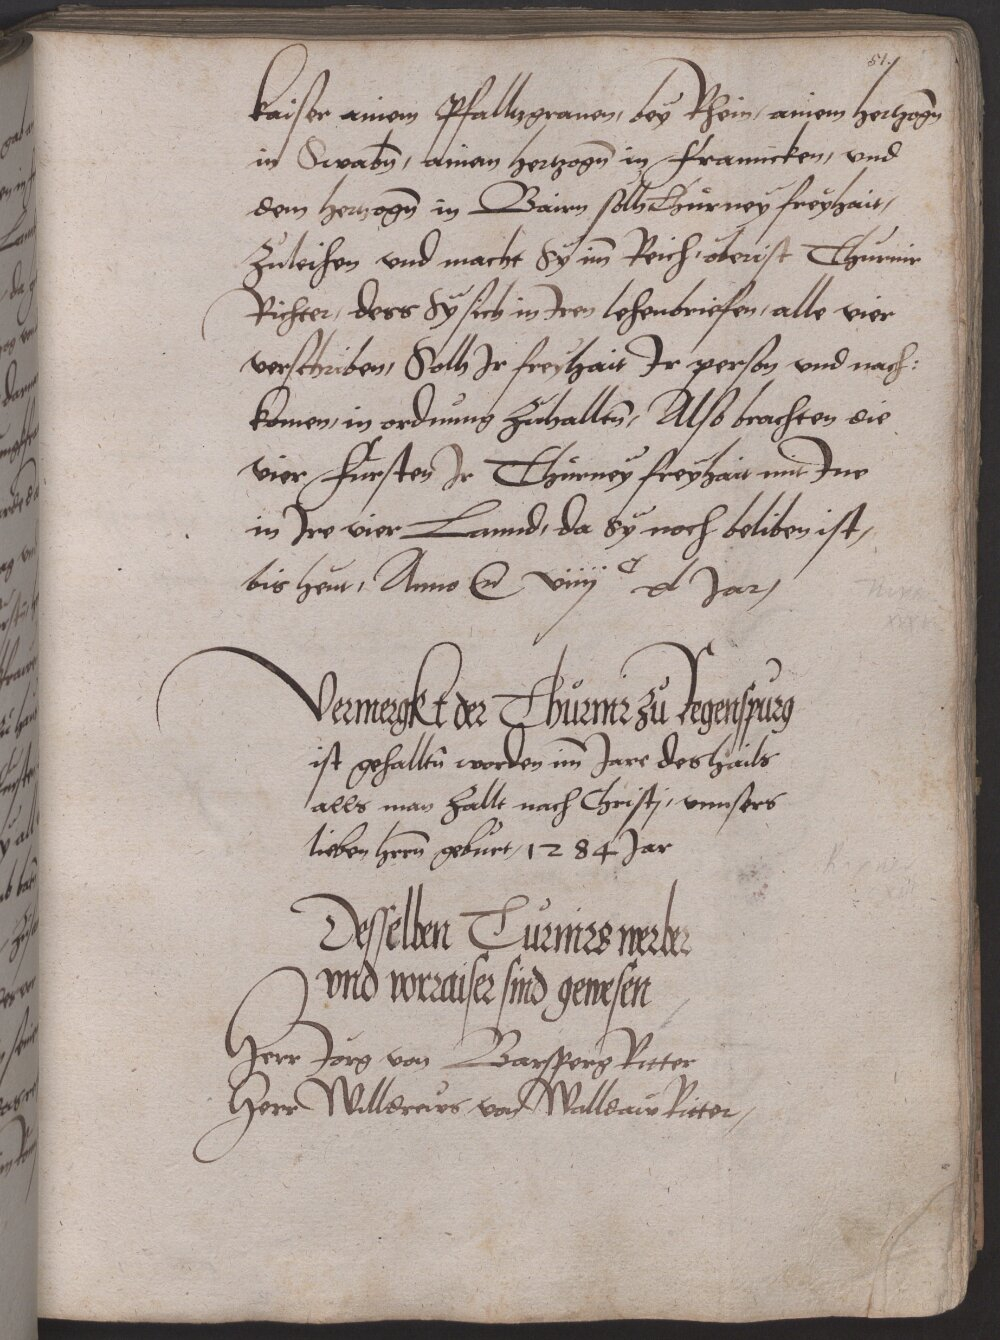 51.
kaiser ainem Pfalltzgrauen, bey Rhein, ainem hertzogn̄
in Swabn̄, ainem hertzogn̄ in Franncken, vnd
dem hertzogn̄ in Bairn sollh Thurney freyhait,
Zuleihen vnd macht Sy im̄ Reich, oberist Thurnir
Richter, dess Sy sich in Iren lehenbriefen, alle vier
verschriben, Sollh Ir freyhait Ir person vnd nach:
komen, in ordnung Zuhalltn̄, Also brachten die
vier Fursten Ir Thurney freyhait mit Ine
in Ire vier Lannd, da Sy noch beliben ist,
bis heut, Anno Jar,
Vermergkt der Thurnir zu Regenspurg
ist gehalltn̄ worden im̄ Jare des hails
alls man zallt nach Christi, vnnsers
lieben hrrn̄ geburt, 1284 Jar
Desselben Turnirs werber
vnd vorraiser sind gewesen
Herr Jorg von Barsperg Ritter
Herr von Ritter,